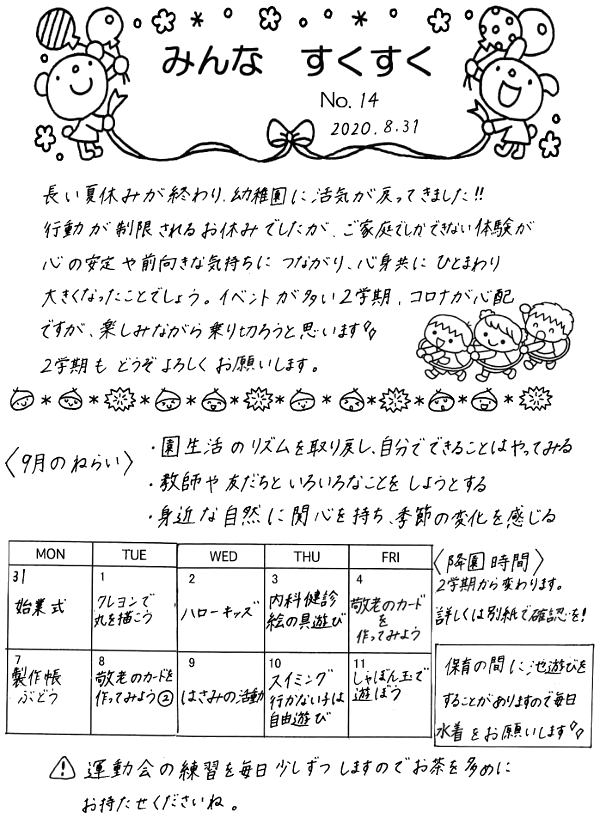 みんな すくすく
No.14
2020.8.31
長い夏休みが終わり、幼稚園に活気が戻ってきました!!
行動が制限されるお休みでしたが、ご家庭でしかできない体験が
心の安定や前向きな気持ちにつながり、心身共にひとまわり
大きくなったことでしょう。イベントが多い2学期、コロナが心配
ですが、楽しみながら乗り切ろうと思います
2学期もどうぞよろしくお願いします。
〈9月のねらい〉
・園生活のリズムを取り戻し、自分でできることはやってみる
・教師や友だちといろいろなことをしようとする
・身近な自然に関心を持ち、季節の変化を感じる
MON TUE WED THU FRI
31
始業式
1
クレヨンで
丸を描こう
2
ハローキッズ
3
内科健診
絵の具遊び
4
敬老のカード
を
作ってみよう
7
製作帳
ぶどう
8
敬老のカードを
作ってみよう②
9
はさみの活動
10
スイミング
行かない子は
自由遊び
11
しゃぼん玉で
遊ぼう
〈降園時間〉
2学期から変わります。
詳しくは別紙で確認を!
保育の間に池遊びを
することがありますので毎日
水着をお願いします
⚠ 運動会の練習を毎日少しずつしますのでお茶を多めに
お持たせくださいね。